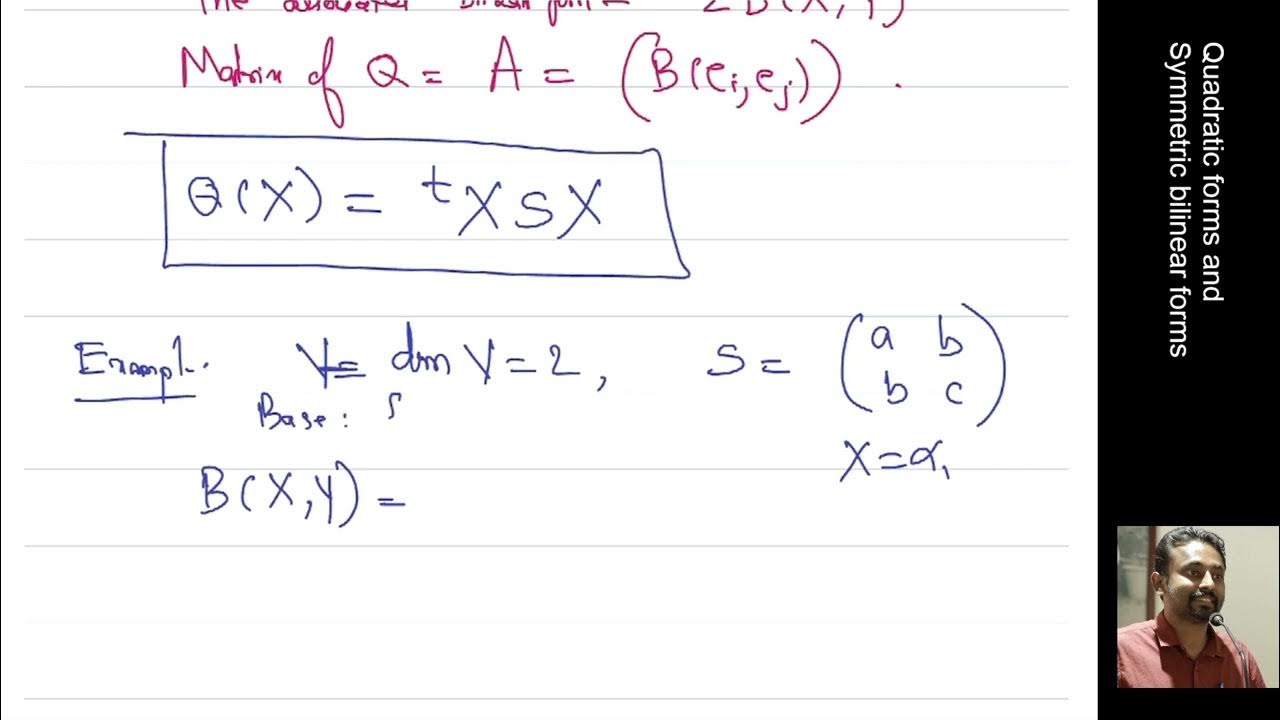 The associated bilinear form 2B(X, Y)
Matrix of Q = A = (B(ei, ej)) .
Q(X) = ᵗX S X
Example. V = dim V = 2, S = (a b
b c)
Base :
X = α₁
B(X, Y) =
Quadratic forms and
Symmetric bilinear forms